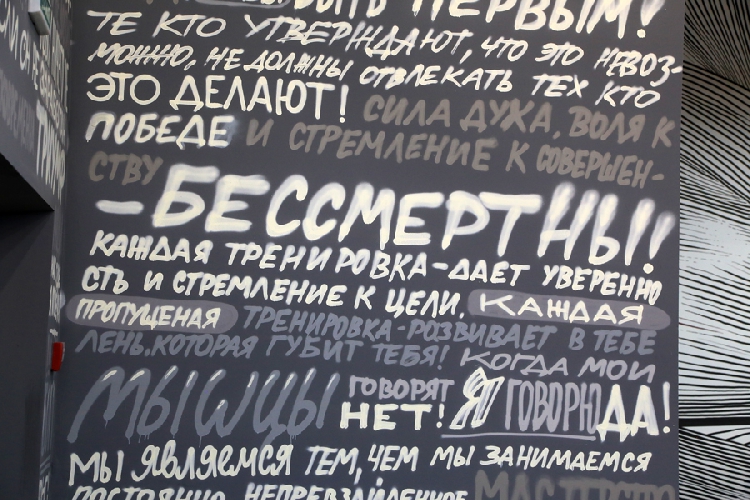 ПЕРВЫМ!
ТЕ КТО УТВЕРЖДАЮТ, ЧТО ЭТО НЕВОЗ-
МОЖНО, НЕ ДОЛЖНЫ ОТВЛЕКАТЬ ТЕХ КТО
ЭТО ДЕЛАЮТ! СИЛА ДУХА, ВОЛЯ К
ПОБЕДЕ И СТРЕМЛЕНИЕ К СОВЕРШЕН-
СТВУ
–БЕССМЕРТНЫ!
КАЖДАЯ ТРЕНИРОВКА-ДАЕТ УВЕРЕННО
СТЬ И СТРЕМЛЕНИЕ К ЦЕЛИ. КАЖДАЯ
ПРОПУЩЕНАЯ ТРЕНИРОВКА-РОЗВИВАЕТ В ТЕБЕ
ЛЕНЬ.КОТОРАЯ ГУБИТ ТЕБЯ! КОГДА МОИ
МЫШЦЫ ГОВОРЯТ НЕТ! Я ГОВОРЮ ДА!
МЫ ЯВЛЯЕМСЯ ТЕМ, ЧЕМ МЫ ЗАНИМАЕМСЯ
ПОСТОЯННО НЕПРЕВЗАЙДЕННОЕ МАСТЕРСТВО